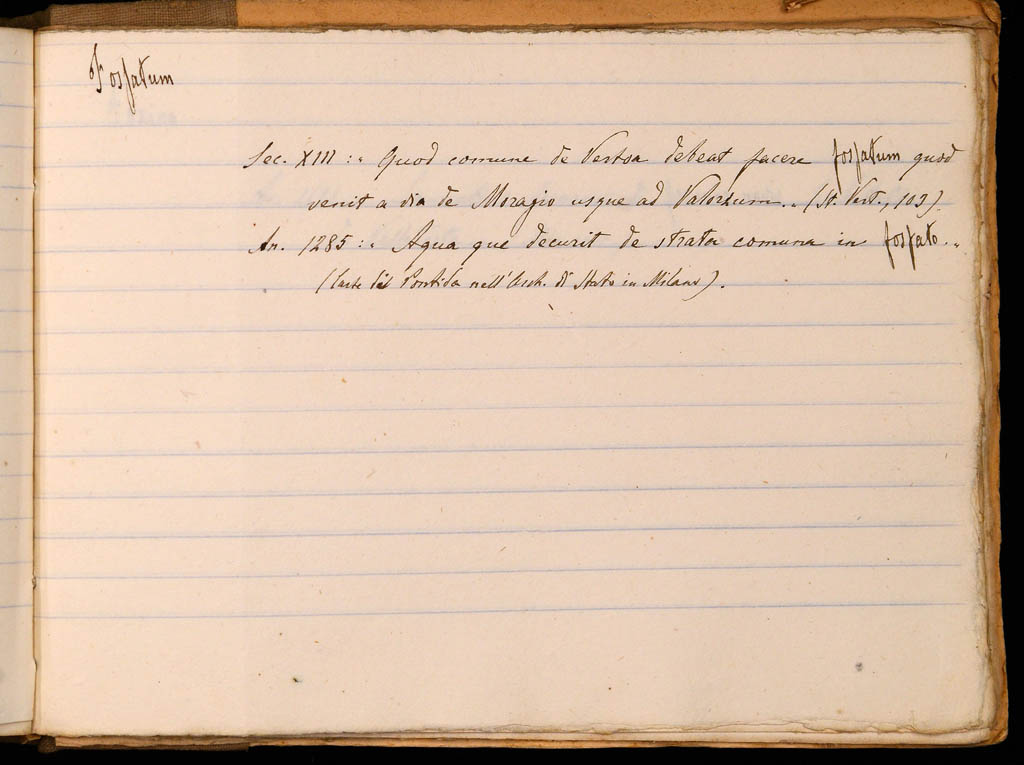 Fosfatum
Sec. XIII: „ Quod comune de Vertoa debeat facere fosfatum quod
venit a via de Moragio usque ad Valorzum „ (St. Vert., 103).
An. 1285: „ Aqua que decurit de strata comuna in fosfato „
(Carte di Pontida nell'Arch. di Stato in Milano).